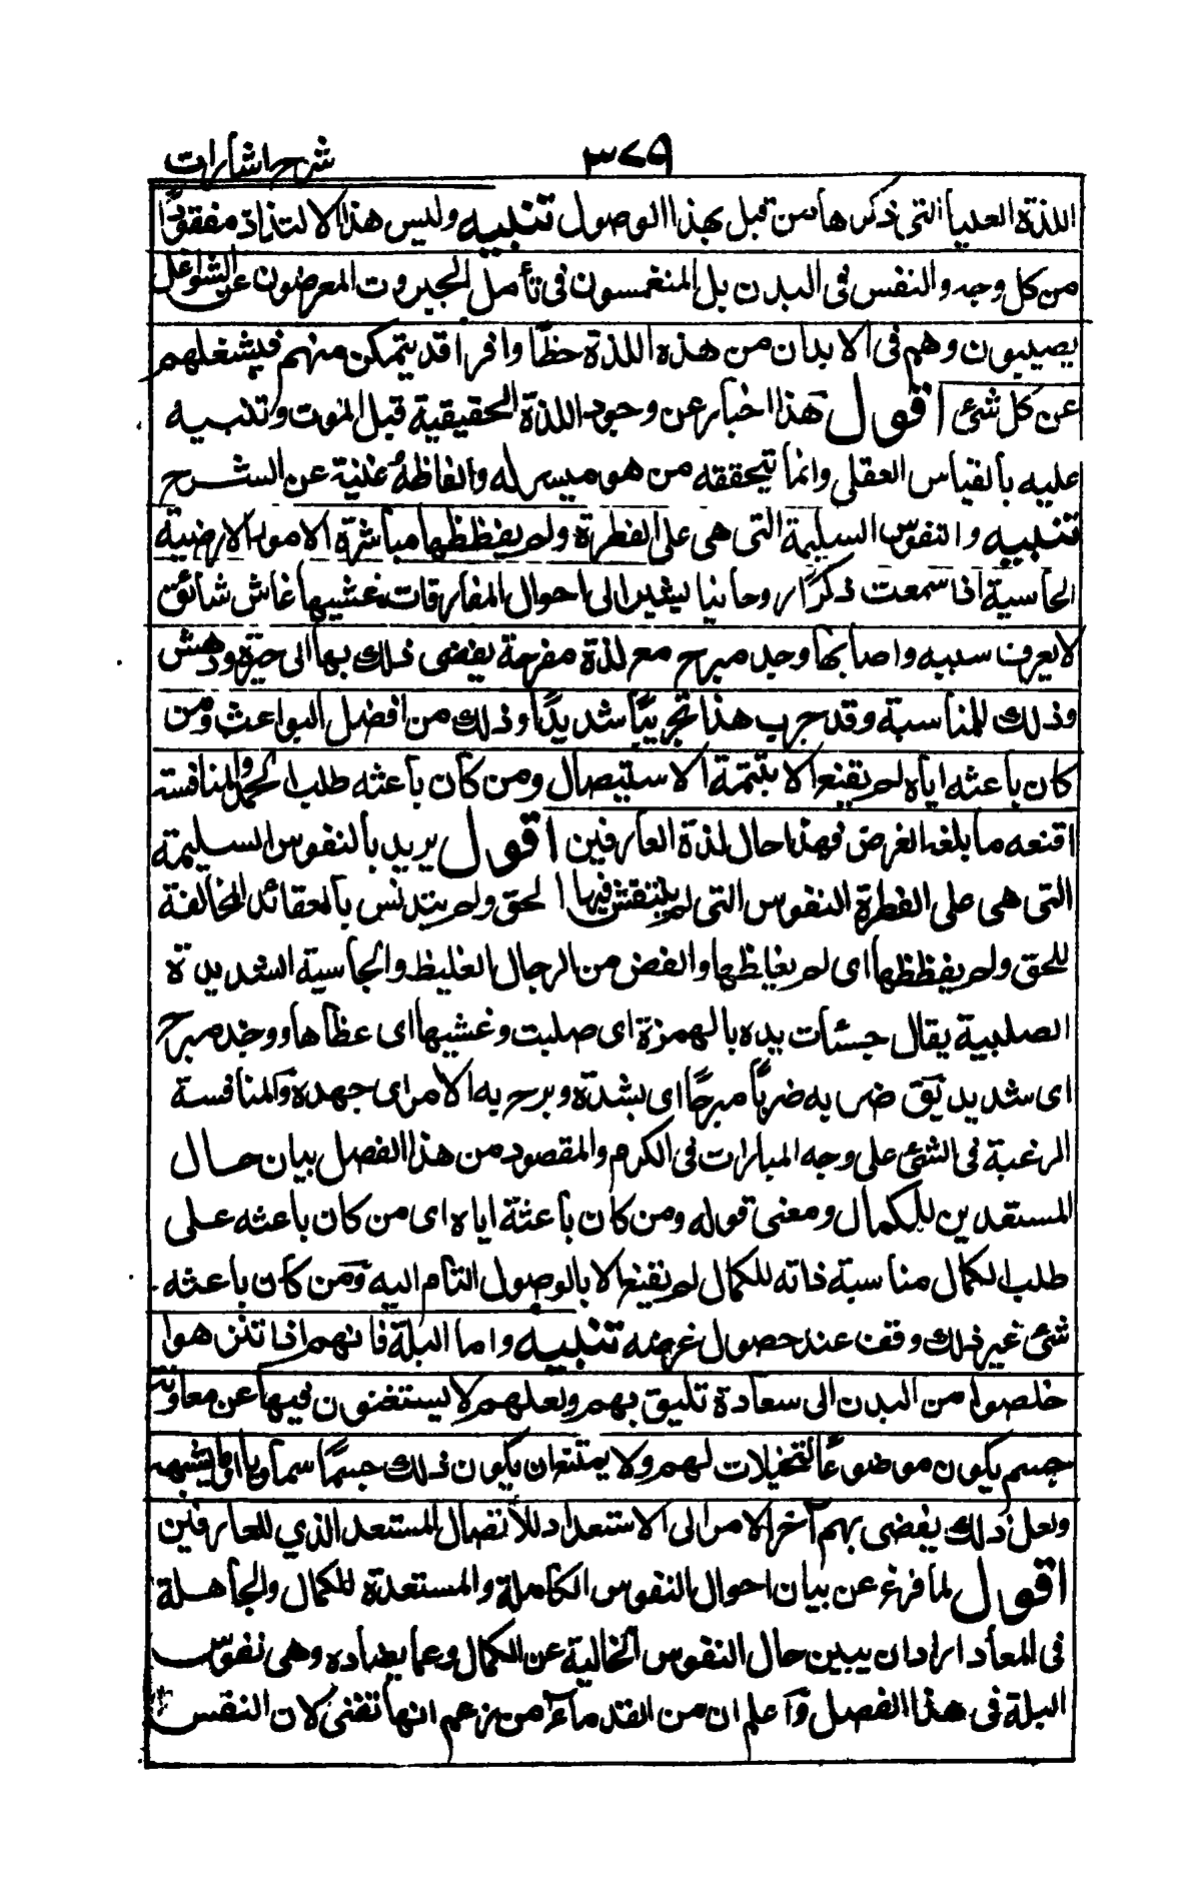 شرح اشارات
٣٧٩
اللذة العليا التى ذكرها من قبل بهذا الوصول تنبيه وليس هذا الالتذاذ مفقودًا
من كل وجه والنفس فى البدن بل المنغمسون فى تأمل الجبروت المعرضون عن الشواغل
يصيبون وهم فى الابدان من هذه اللذة حظًّا وافرا قد يتمكن منهم فيشغلهم
عن كل شئ اقول هذا اخبار عن وجود اللذة الحقيقية قبل الموت وتنبيه
عليه بالقياس العقلى وانما يتحققه من هو ميسر له والفاظهُ غنية عن الشرح
تنبيه والنفوس السليمة التى هى على الفطرة ولم يفظظها مباشرة الامور الارضية
الجاسية اذا سمعت ذكرًا روحانيا يشير الى احوال المفارقات غشيها غاش شائق
لا يعرف سببه واصابها وجد مبرح مع لذة مفرحة يفضى ذلك بها الى حيرة ودهش
وذلك للمناسبة وقد جرب هذا تجريبًا شديدًا وذلك من افضل البواعث ومن
كان باعثه اياه لم يقنع الا بتتمة الاستبصال ومن كان باعثه طلب الحمد والمنافسة
اقنعه ما بلغه الغرض فهذا حال لذة العارفين اقول يريد بالنفوس السليمة
التى هى على الفطرة النفوس التى لم ينتقش فيها الحق ولم يتدنس بالعقائد المخالفة
للحق ولم يفظظها اى لم يغلظها والفض من الرجال الغليظ والجاسية الشديدة
الصلبية يقال جسئات يده بالهمزة اى صلبت وغشيها اى غطاها ووجد مبرح
اى شديد يَق ضربه ضربًا مبرحًا اى بشدة وبرح به الامر اى جهده والمنافسة
الرغبة فى الشئ على وجه المبارات فى الكرم والمقصود من هذا الفصل بيان حال
المستعدين للكمال ومعنى قوله ومن كان باعثة اياه اى من كان باعثه على
طلب الكمال مناسبة ذاته للكمال لم يقنع الا بالوصول التام اليه ومن كان باعثه
شئ غير ذلك وقف عند حصول غرضه تنبيه واما البلة فانهم اذا تنزهوا
خلصوا من البدن الى سعادة تليق بهم ولعلهم لا يستغنون فيها عن معاونة
جسم يكون موضوعًا لتخيلات لهم ولا يمتنع ان يكون ذلك جسمًا سماويا او ما يشبهه
ولعل ذلك يفضى بهم آخر الامر الى الاستعداد للاتصال المستعد الذي للعارفين
اقول لما فرغ عن بيان احوال النفوس الكاملة والمستعدة للكمال والجاهلة
فى المعاد اراد ان يبين حال النفوس الخالية عن الكمال وعما يضاده وهى نفوس
البلة فى هذا الفصل وآعلم ان من القدماء من زعم انها تفنى لان النفس